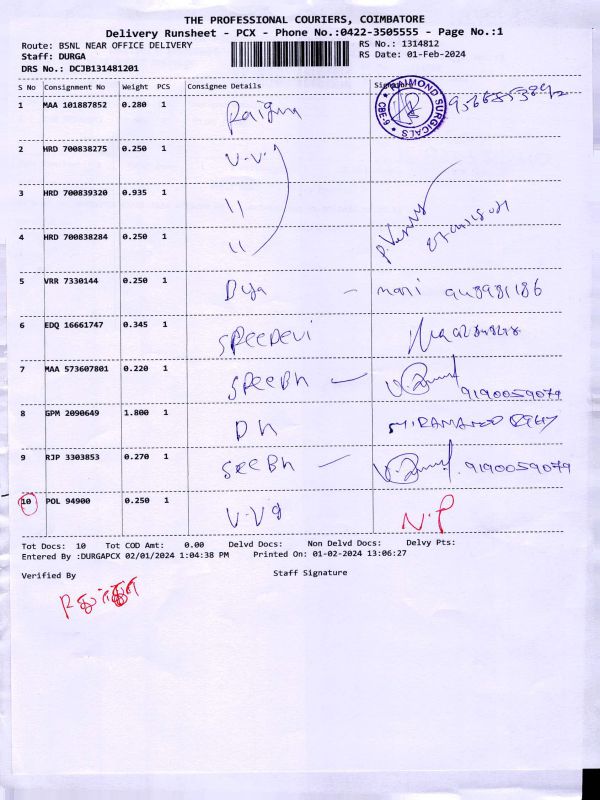 THE PROFESSIONAL COURIERS, COIMBATORE
Delivery Runsheet - PCX - Phone No.:0422-3505555 - Page No.:1
Route: BSNL NEAR OFFICE DELIVERY RS No.: 1314812
Staff: DURGA RS Date: 01-Feb-2024
DRS No.: DCJB131481201
S No Consignment No Weight PCS Consignee Details
1 MAA 101887852 0.280 1 DIAMOND SURGICALS CBE-9
2 HRD 700838275 0.250 1 V.V.
3 HRD 700839320 0.935 1 11
4 HRD 700838284 0.250 1 11
5 VRR 7330144 0.250 1 - mani
6 EDQ 16661747 0.345 1 SREEDEVI
7 MAA 573607801 0.220 1 SREEBH - 9190059079
8 GPM 2090649 1.800 1 DN
9 RJP 3303853 0.270 1 SREEBH - 9190059079
10 POL 94900 0.250 1 N.P
Tot Docs: 10 Tot COD Amt: 0.00 Delvd Docs: Non Delvd Docs: Delvy Pts:
Entered By :DURGAPCX 02/01/2024 1:04:38 PM Printed On: 01-02-2024 13:06:27
Verified By Staff Signature